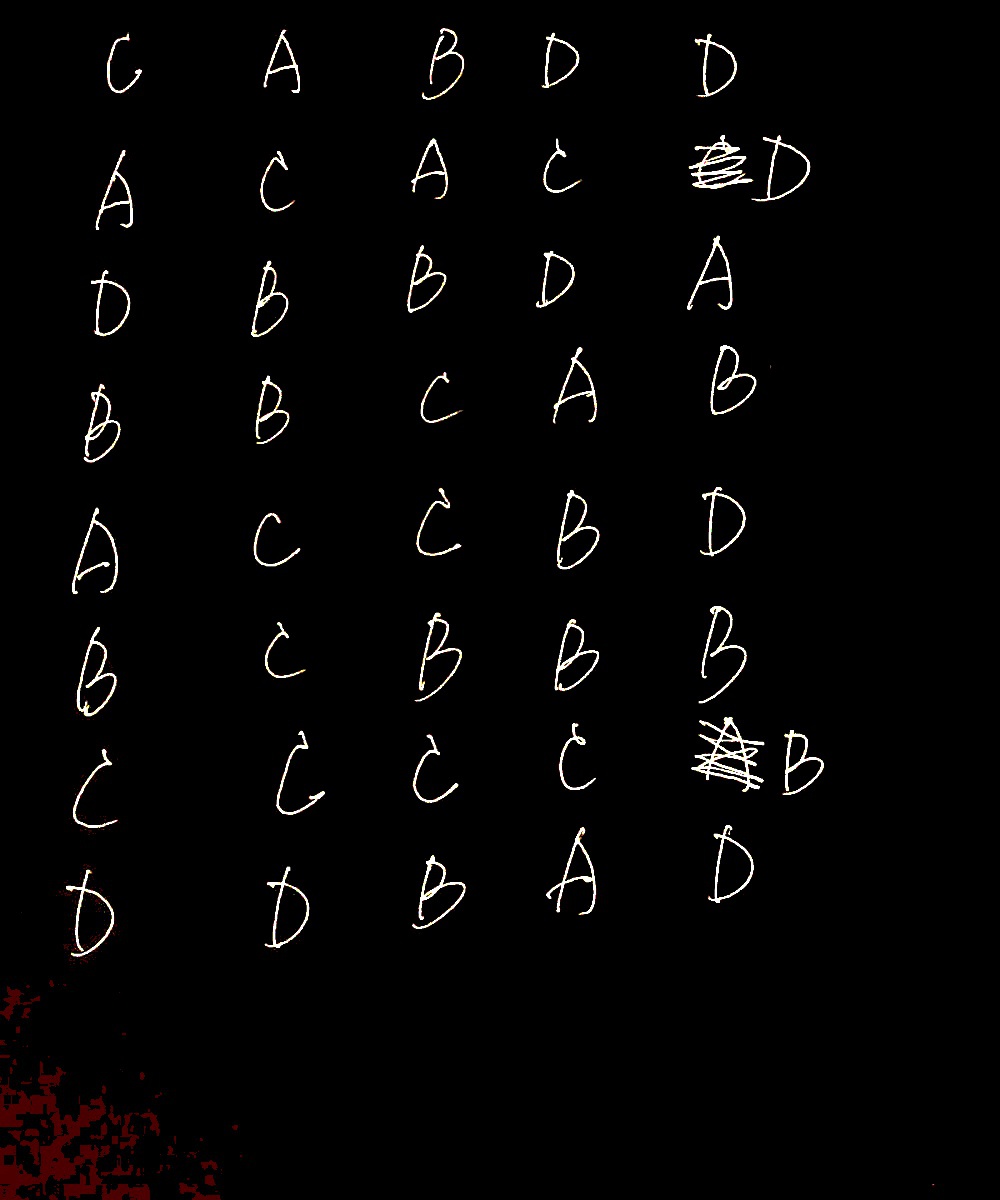 C A B D D
A C A C D
D B B D A
B B C A B
A C C B D
B C B B B
C C C C B
D D B A D